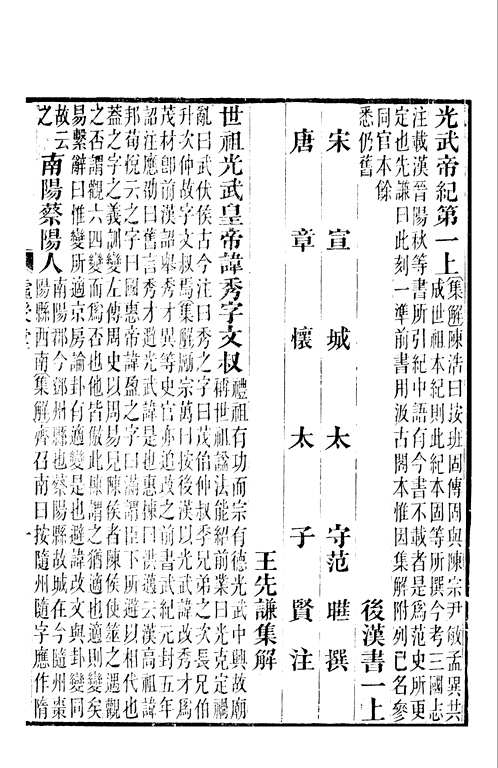 光武帝紀第一上
集解陳浩曰按班固傳固與陳宗尹敏孟異共
成世祖本紀則此紀本固等所撰今考三國志
注載漢晉陽秋等書所引紀中語有今書不載者是爲范史所更
定也先謙曰此刻一準前書用汲古閣本惟因集解附列已名參
同官本餘
悉仍舊
後漢書一上
宋宣城太守范曄撰
唐章懷太子賢注
王先謙集解
世祖光武皇帝諱秀字文叔
禮祖有功而宗有德光武中興故廟
稱世祖諡法能紹前業曰光克定禍
亂曰武伏侯古今注曰秀之字曰茂伯仲叔季兄弟之次長兄伯
升次仲故字文叔焉集解勵宗萬曰按後漢以光武諱改秀才爲
茂材郎前漢詔舉秀才異等史官亦追改之前書武紀元封五年
詔注應劭曰舊言秀才避光武諱是也惠棟曰洪邁云漢高祖諱
邦荀悅云之字曰國惠帝諱盈之字曰滿謂臣下所避以相代也
蓋之字之義訓變左傳周史以周易見陳侯者陳侯使筮之遇觀
之否謂觀六四變而爲否也他皆倣此棟謂之猶適也適則變矣
易繫辭曰惟變所適京房論卦有適變是也避諱改文與卦變同
故云
之
南陽蔡陽人
南陽郡今鄧州縣也蔡陽縣故城在今隨州棗
陽縣西南集解齊召南曰按隨州隨字應作隋
虛受堂
一